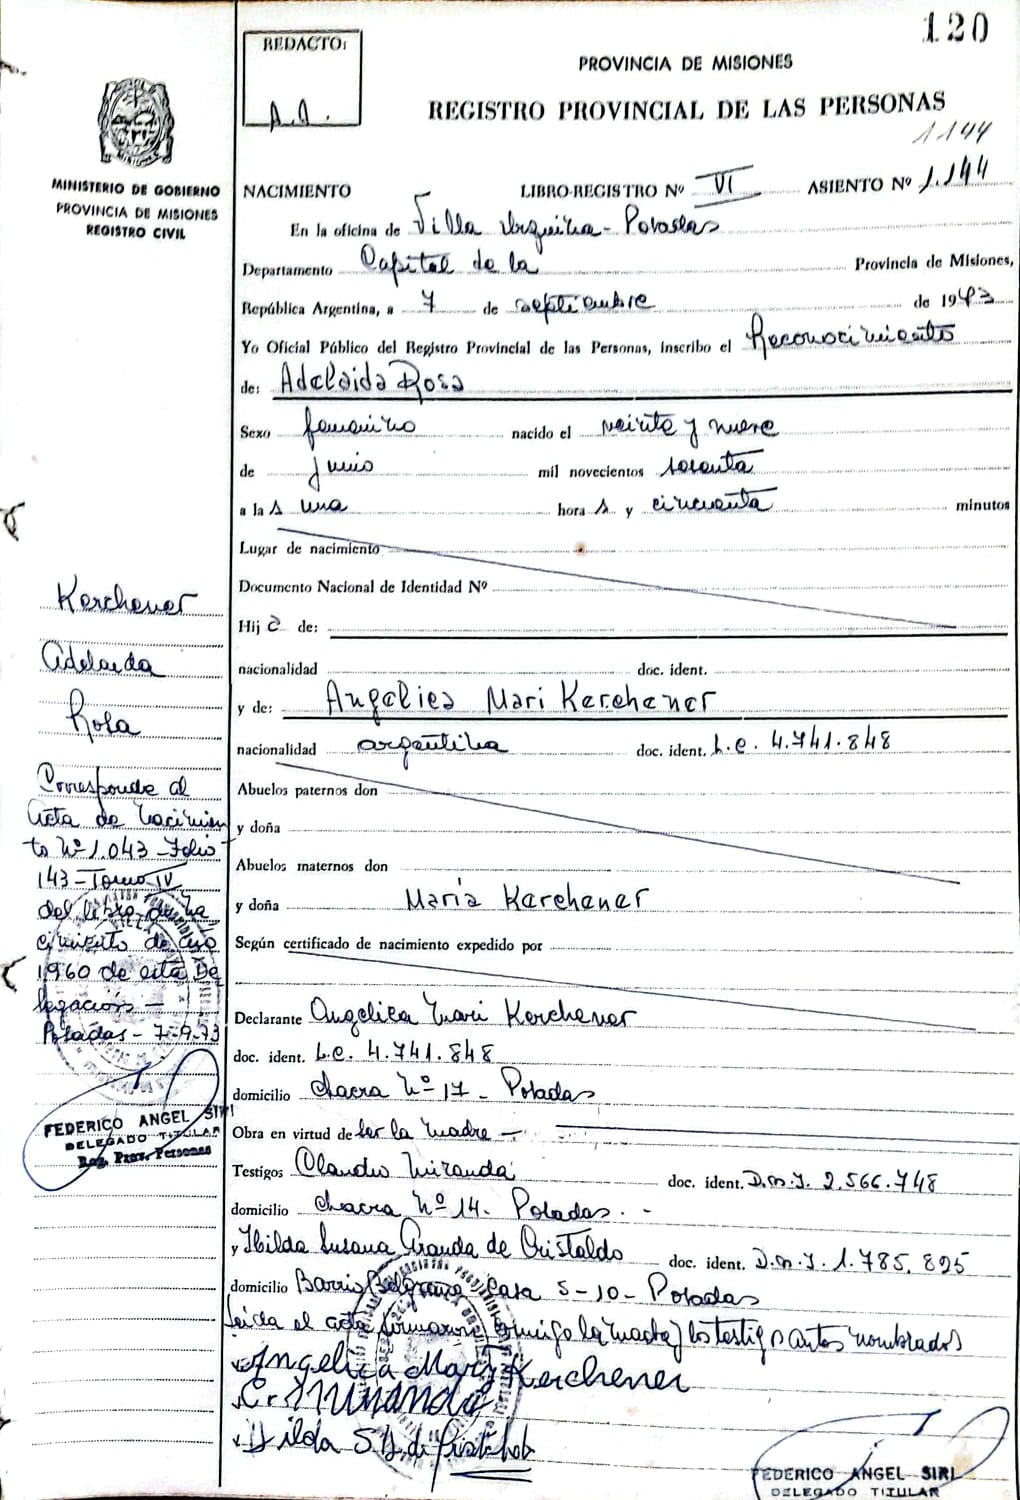 120
REDACTO:
A.A.
PROVINCIA DE MISIONES
REGISTRO PROVINCIAL DE LAS PERSONAS
1144
MINISTERIO DE GOBIERNO
PROVINCIA DE MISIONES
REGISTRO CIVIL
NACIMIENTO LIBRO-REGISTRO Nº VI ASIENTO Nº 1.144
En la oficina de Villa Urquiza - Posadas
Departamento Capital de la Provincia de Misiones,
República Argentina, a 7 de septiembre de 1973
Yo Oficial Público del Registro Provincial de las Personas, inscribo el Reconocimiento
de: Adelaida Rosa
Sexo femenino nacido el veinte y nueve
de junio mil novecientos sesenta
a la s una hora s y cincuenta minutos
Lugar de nacimiento
Documento Nacional de Identidad Nº
Hij a de:
nacionalidad doc. ident.
y de: Angelica Mari Kerchener
nacionalidad argentina doc. ident. L.C. 4.741.848
Abuelos paternos don
y doña
Abuelos maternos don
y doña Maria Kerchener
Según certificado de nacimiento expedido por
Declarante Angelica Mari Kerchener
doc. ident. L.C. 4.741.848
domicilio chacra Nº 17 - Posadas
Obra en virtud de ser la madre -
Testigos Claudio Miranda doc. ident. D.N.I. 2.566.748
domicilio chacra Nº 14 - Posadas. -
y Hilda Susana Aranda de Cristaldo doc. ident. D.N.I. 1.785.825
domicilio Barrio Belgrano Casa 5-10- Posadas
Leida el acta firmaron conmigo la madre y los testigos antes nombrados
Angelica Mary Kerchener
C. Miranda
Hilda S A. de
Kerchener
Adelaida
Rosa
Corresponde al
acta de nacimien
to Nº 1.043 - Folio
143 - Tomo IV
del libro de na
cimiento de año
1960 de esta De
legación -
Posadas - 7-9-73
FEDERICO ANGEL SIRI
DELEGADO TITULAR
Reg. Prov. Personas
FEDERICO ANGEL SIRI
DELEGADO TITULAR